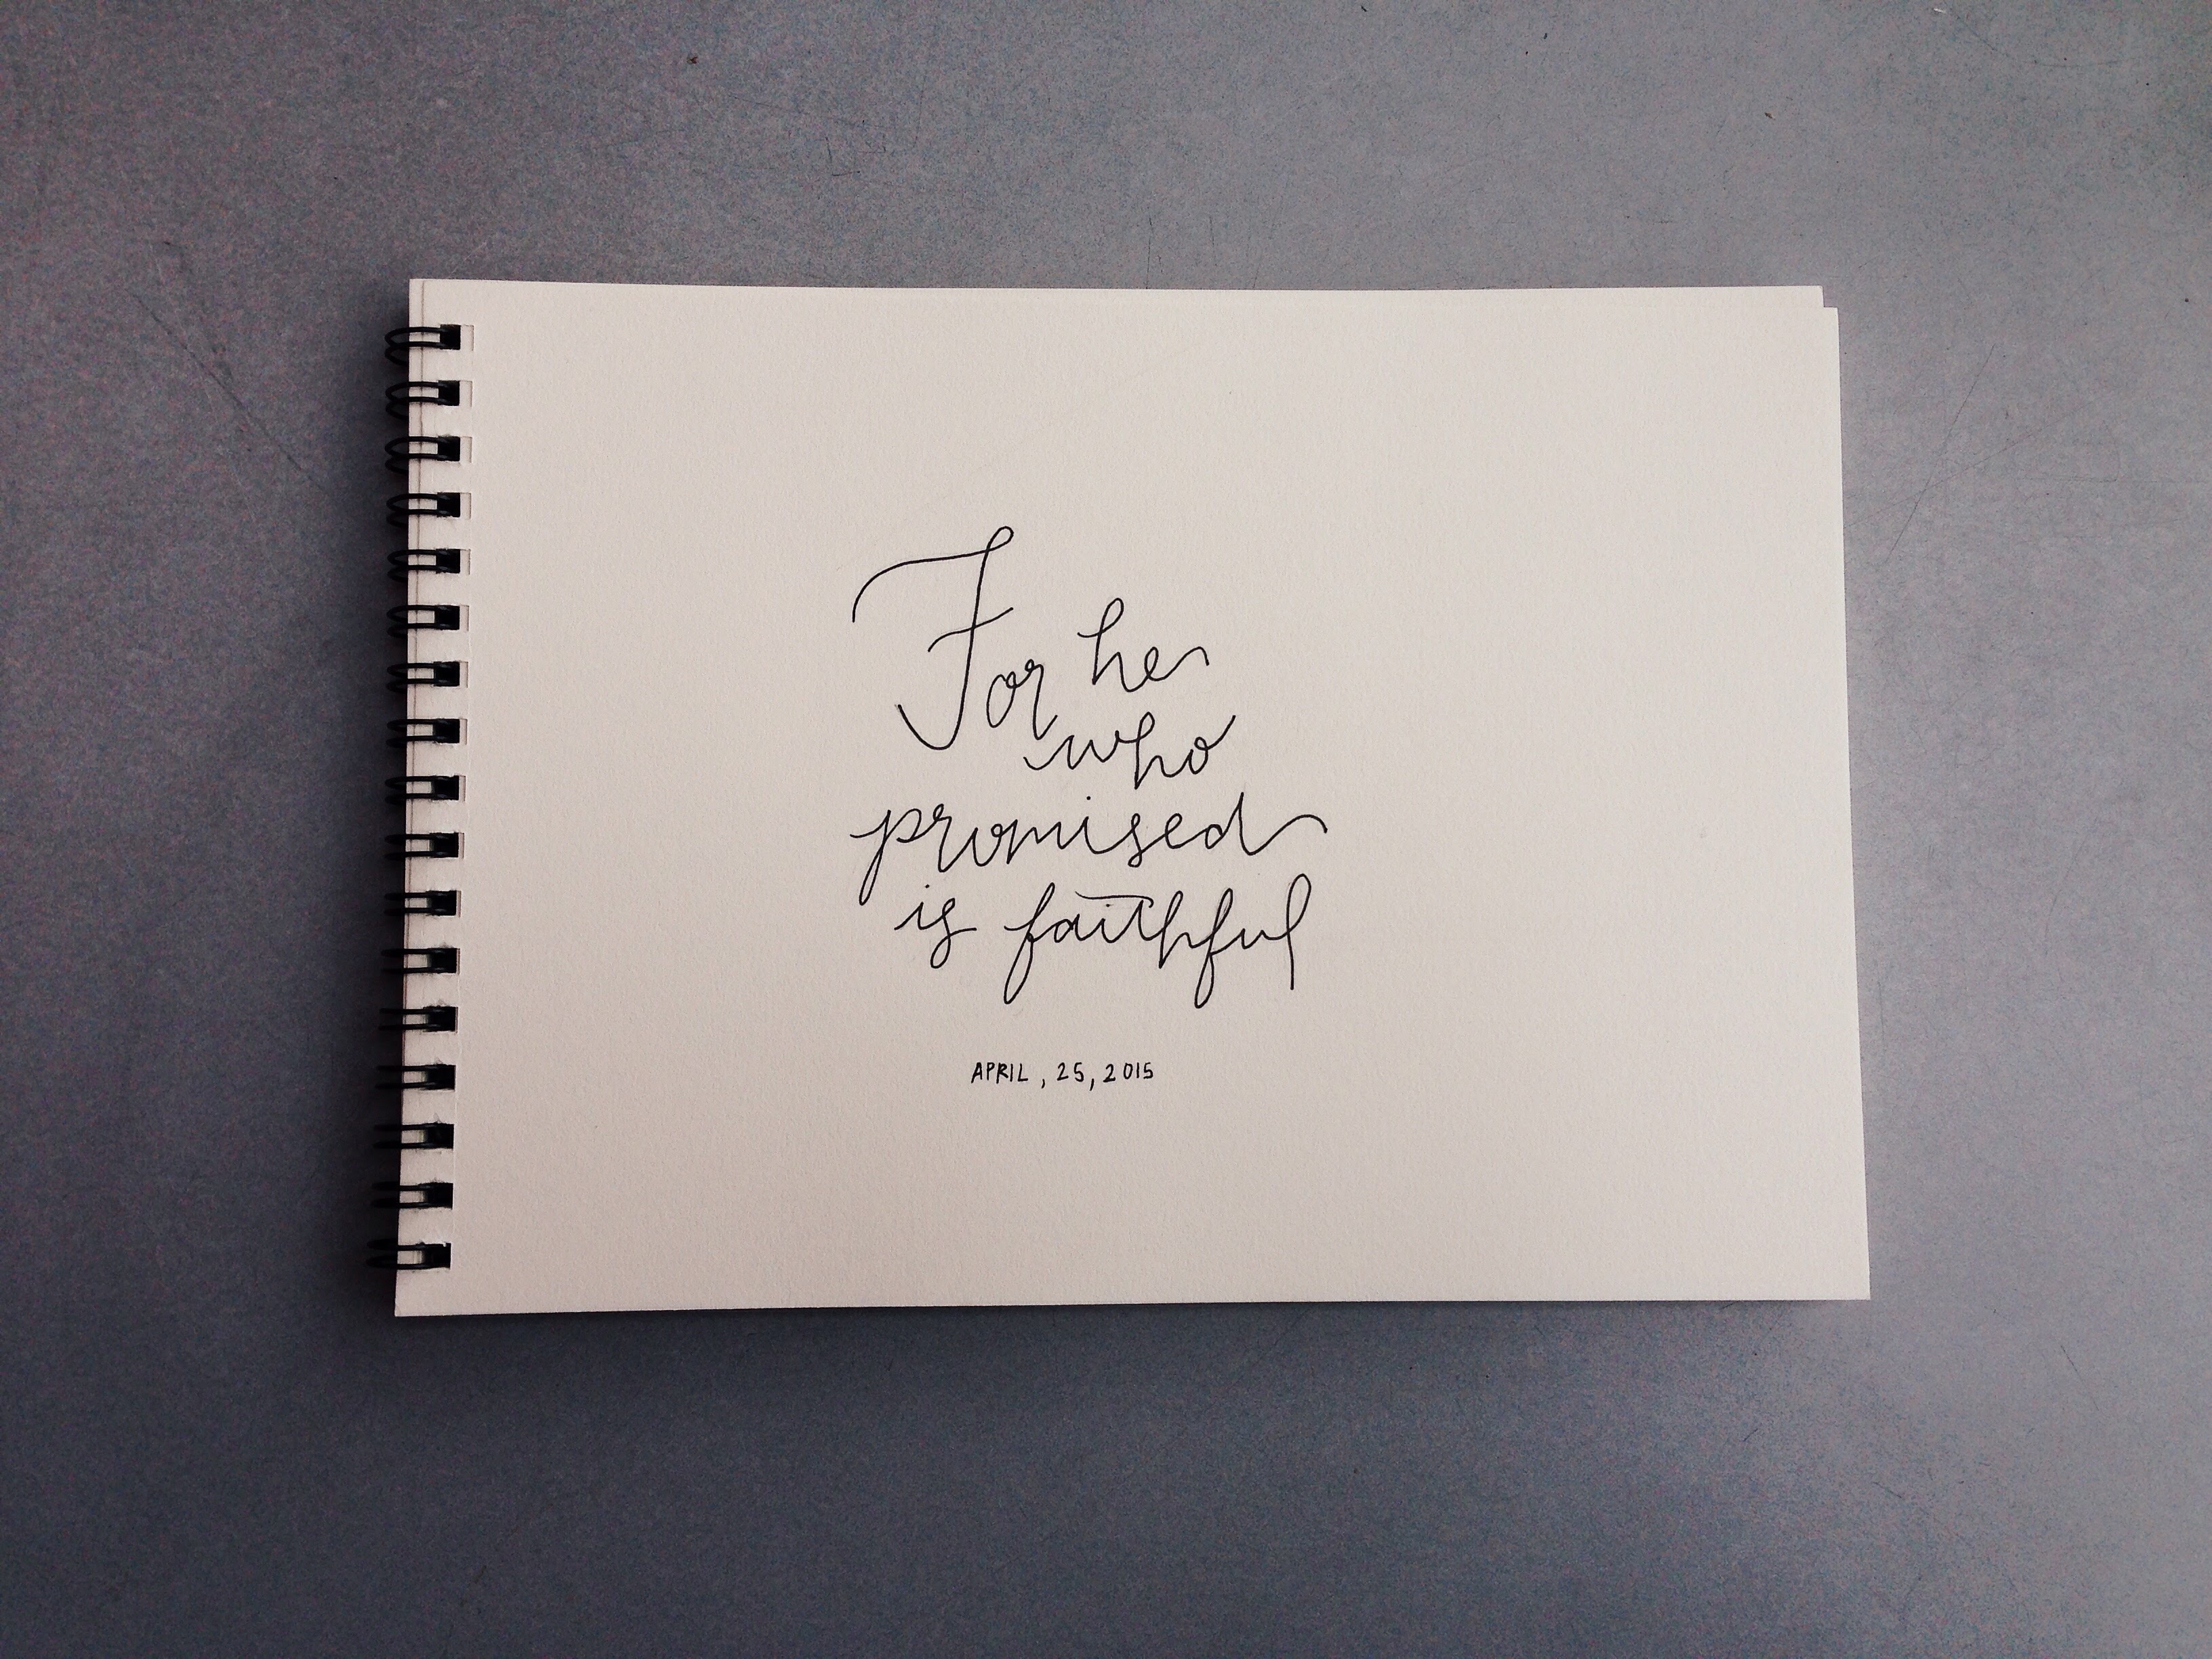 For he
who
promised
is faithful
APRIL, 25, 2015